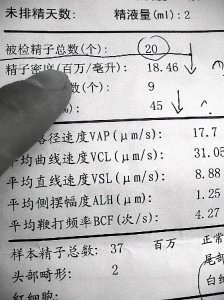 未排精天数: 精液量(ml):2
被检精子总数(个): 20
精子密度(百万/毫升): 18.46
数(个): 9
%): 45
路径速度VAP(μm/s): 17.7
平均曲线速度VCL(μm/s): 31.05
平均直线速度VSL(μm/s): 8.88
平均侧摆幅度ALH(μm): 1.25
平均鞭打频率BCF(次/s): 4.27
样本精子总数: 37 百万 正常
头部畸形: 2 尾部
白细
红细胞: